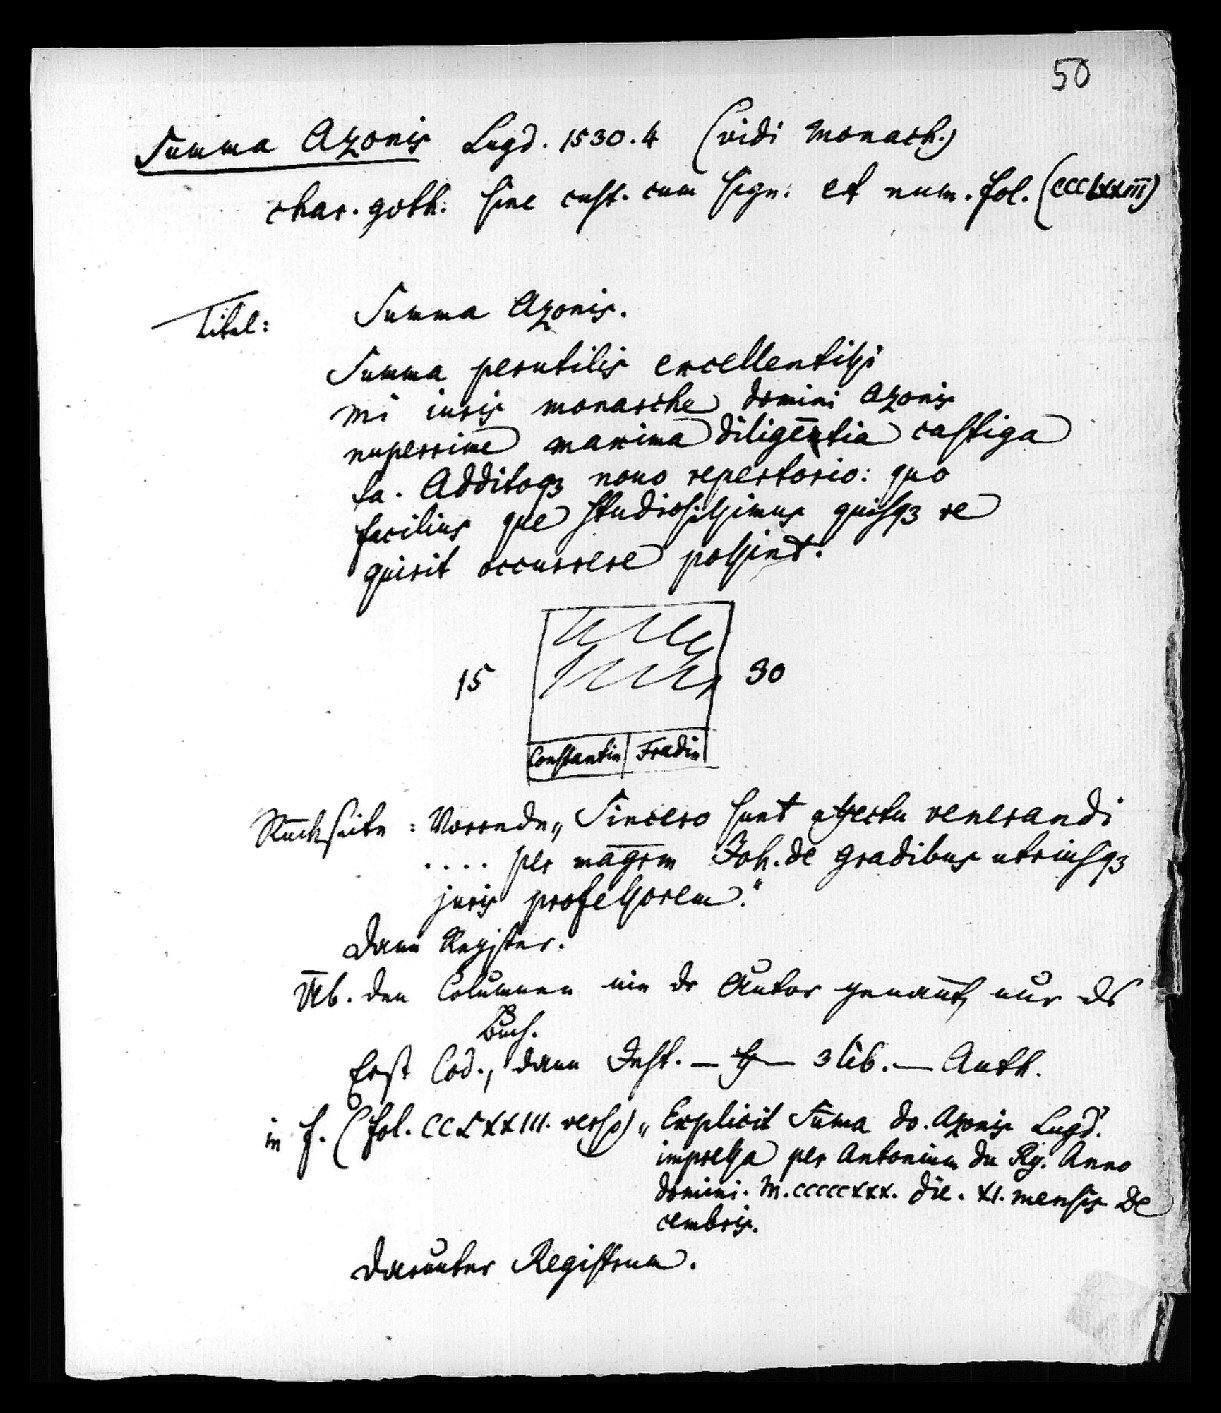 50
Summa Azonis Lugd. 1530. 4 (vidi Monach.)
char. goth. sine cust. cum sign. et num. fol. (CCCLXXIII)
Titel: Summa Azonis.
Summa perutilis excellentissi
mi iuris monarche domini Azonis
nuperrime maxima diligentia castiga
ta. Additoqȝ nouo repertorio: quo
facilius que studiosissimus quisqȝ re
quirit occurrere possint.
15 30
Constantin Fradin
Rückseite: Vorrede „Sincero sunt affectu venerandi
.... per magrm Joh. de gradibus utriusqȝ
juris professorem."
Dann Register.
Üb. den Columnen nie dr Autor genan̄t, nur ds
Buch.
Erst Cod., dann Inst. — ff — 3 lib. — Auth.
in f. (fol. CCLXXIII. verso) „Explicit Sūma do. Azonis Lugd.
impressa per Antonium du Ry. Anno
domini. M.CCCCCXXX. die. XI. mensis De
cembris.
Darunter Registrum.